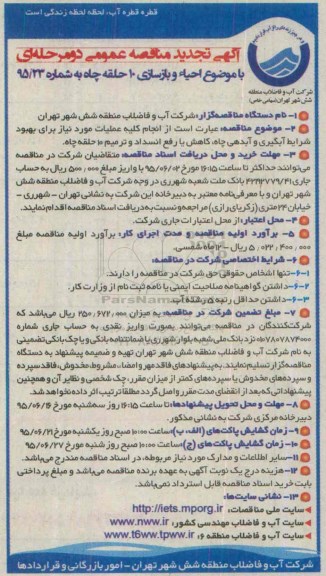 قطره قطره آب، لحظه لحظه زندگی است
آگهی تجدید مناقصه عمومی دو مرحله‌ای
با موضوع احیاء و بازسازی ۱۰ حلقه چاه به شماره ۹۵/۲۳
شرکت آب و فاضلاب منطقه
شش شهر تهران (سهامی خاص)
۱- نام دستگاه مناقصه‌گزار: شرکت آب و فاضلاب منطقه شش شهر تهران
۲- موضوع مناقصه: عبارت است از انجام کلیه عملیات مورد نیاز برای بهبود
شرایط آبگیری و آبدهی چاه، کاهش یا رفع انسداد و ترمیم ۱۰ حلقه چاه.
۳- مهلت خرید و محل دریافت اسناد مناقصه: متقاضیان شرکت در مناقصه
می‌توانند حداکثر تا ساعت ۱۶:۱۵ مورخ ۹۵/۰۶/۰۲ با واریز مبلغ ۵۰۰,۰۰۰ ریال به حساب
جاری ۴۲۹۲۷۷۹/۴۱ بانک ملت شعبه شهرری در وجه شرکت آب و فاضلاب منطقه شش
شهر تهران و با معرفی‌نامه معتبر به دبیرخانه این شرکت به نشانی تهران - شهرری -
خیابان ۲۴ متری (زکریای رازی) مراجعه و نسبت به دریافت اسناد مناقصه اقدام نمایند.
۴- محل اعتبار: از محل اعتبارات جاری شرکت.
۵- برآورد اولیه مناقصه و مدت اجرای کار: برآورد اولیه مناقصه مبلغ
۵,۰۲۲,۴۰۰,۰۰۰ ریال - ۱۲ ماه شمسی.
۶- شرایط اختصاصی شرکت در مناقصه:
۶-۱- تنها اشخاص حقوقی حق شرکت در مناقصه را دارند.
۶-۲- داشتن گواهینامه صلاحیت ایمنی یا نامه ثبت نام از وزارت کار.
۶-۳- داشتن حداقل رتبه ۵ رشته آب.
۷- مبلغ تضمین شرکت در مناقصه: به میزان ۲۵۰,۶۷۲,۰۰۰ ریال می‌باشد که
شرکت‌کنندگان در مناقصه می‌توانند بصورت واریز نقدی به حساب جاری شماره
نزد بانک ملی شعبه بلوار شهرری یا ضمانتنامه بانکی و یا چک بانکی تضمینی
به نام شرکت آب و فاضلاب منطقه شش شهر تهران تهیه و ضمیمه پیشنهاد به دستگاه
مناقصه‌گزار تسلیم نمایند. به پیشنهادهای فاقد مهر و امضاء، مشروط، مخدوش، فاقد سپرده
و سپرده‌های مخدوش یا سپرده‌های کمتر از میزان مقرر، چک شخصی و نظایر آن و همچنین
پیشنهاداتی که بعد از انقضای مدت مقرر واصل گردد مطلقاً ترتیب اثر داده نخواهد شد.
۸- مهلت و محل تحویل پیشنهادها: تا ساعت ۱۶:۱۵ روز سه‌شنبه مورخ ۹۵/۰۶/۱۶
دبیرخانه مرکزی شرکت به نشانی مذکور.
۹- زمان گشایش پاکت‌های (الف، ب): ساعت ۱۰:۰۰ صبح روز یکشنبه مورخ ۹۵/۰۶/۲۱
۱۰- زمان گشایش پاکت‌های (ج): ساعت ۱۰:۰۰ صبح روز شنبه مورخ ۹۵/۰۶/۲۷
۱۱- سایر اطلاعات و مدارک مورد نیاز مربوطه، در اسناد مناقصه مندرج می‌باشد.
۱۲- هزینه درج یک نوبت آگهی به عهده برنده مناقصه می‌باشد و مبلغ پرداختی
بابت خرید اسناد مناقصه قابل استرداد نمی‌باشد.
۱۳- نشانی سایت‌ها:
سایت ملی مناقصات: http://iets.mporg.ir
سایت آب و فاضلاب مهندسی کشور: www.nww.ir
سایت آب و فاضلاب منطقه ۶: www.t6ww.tpww.ir
شرکت آب و فاضلاب منطقه شش شهر تهران - امور بازرگانی و قراردادها